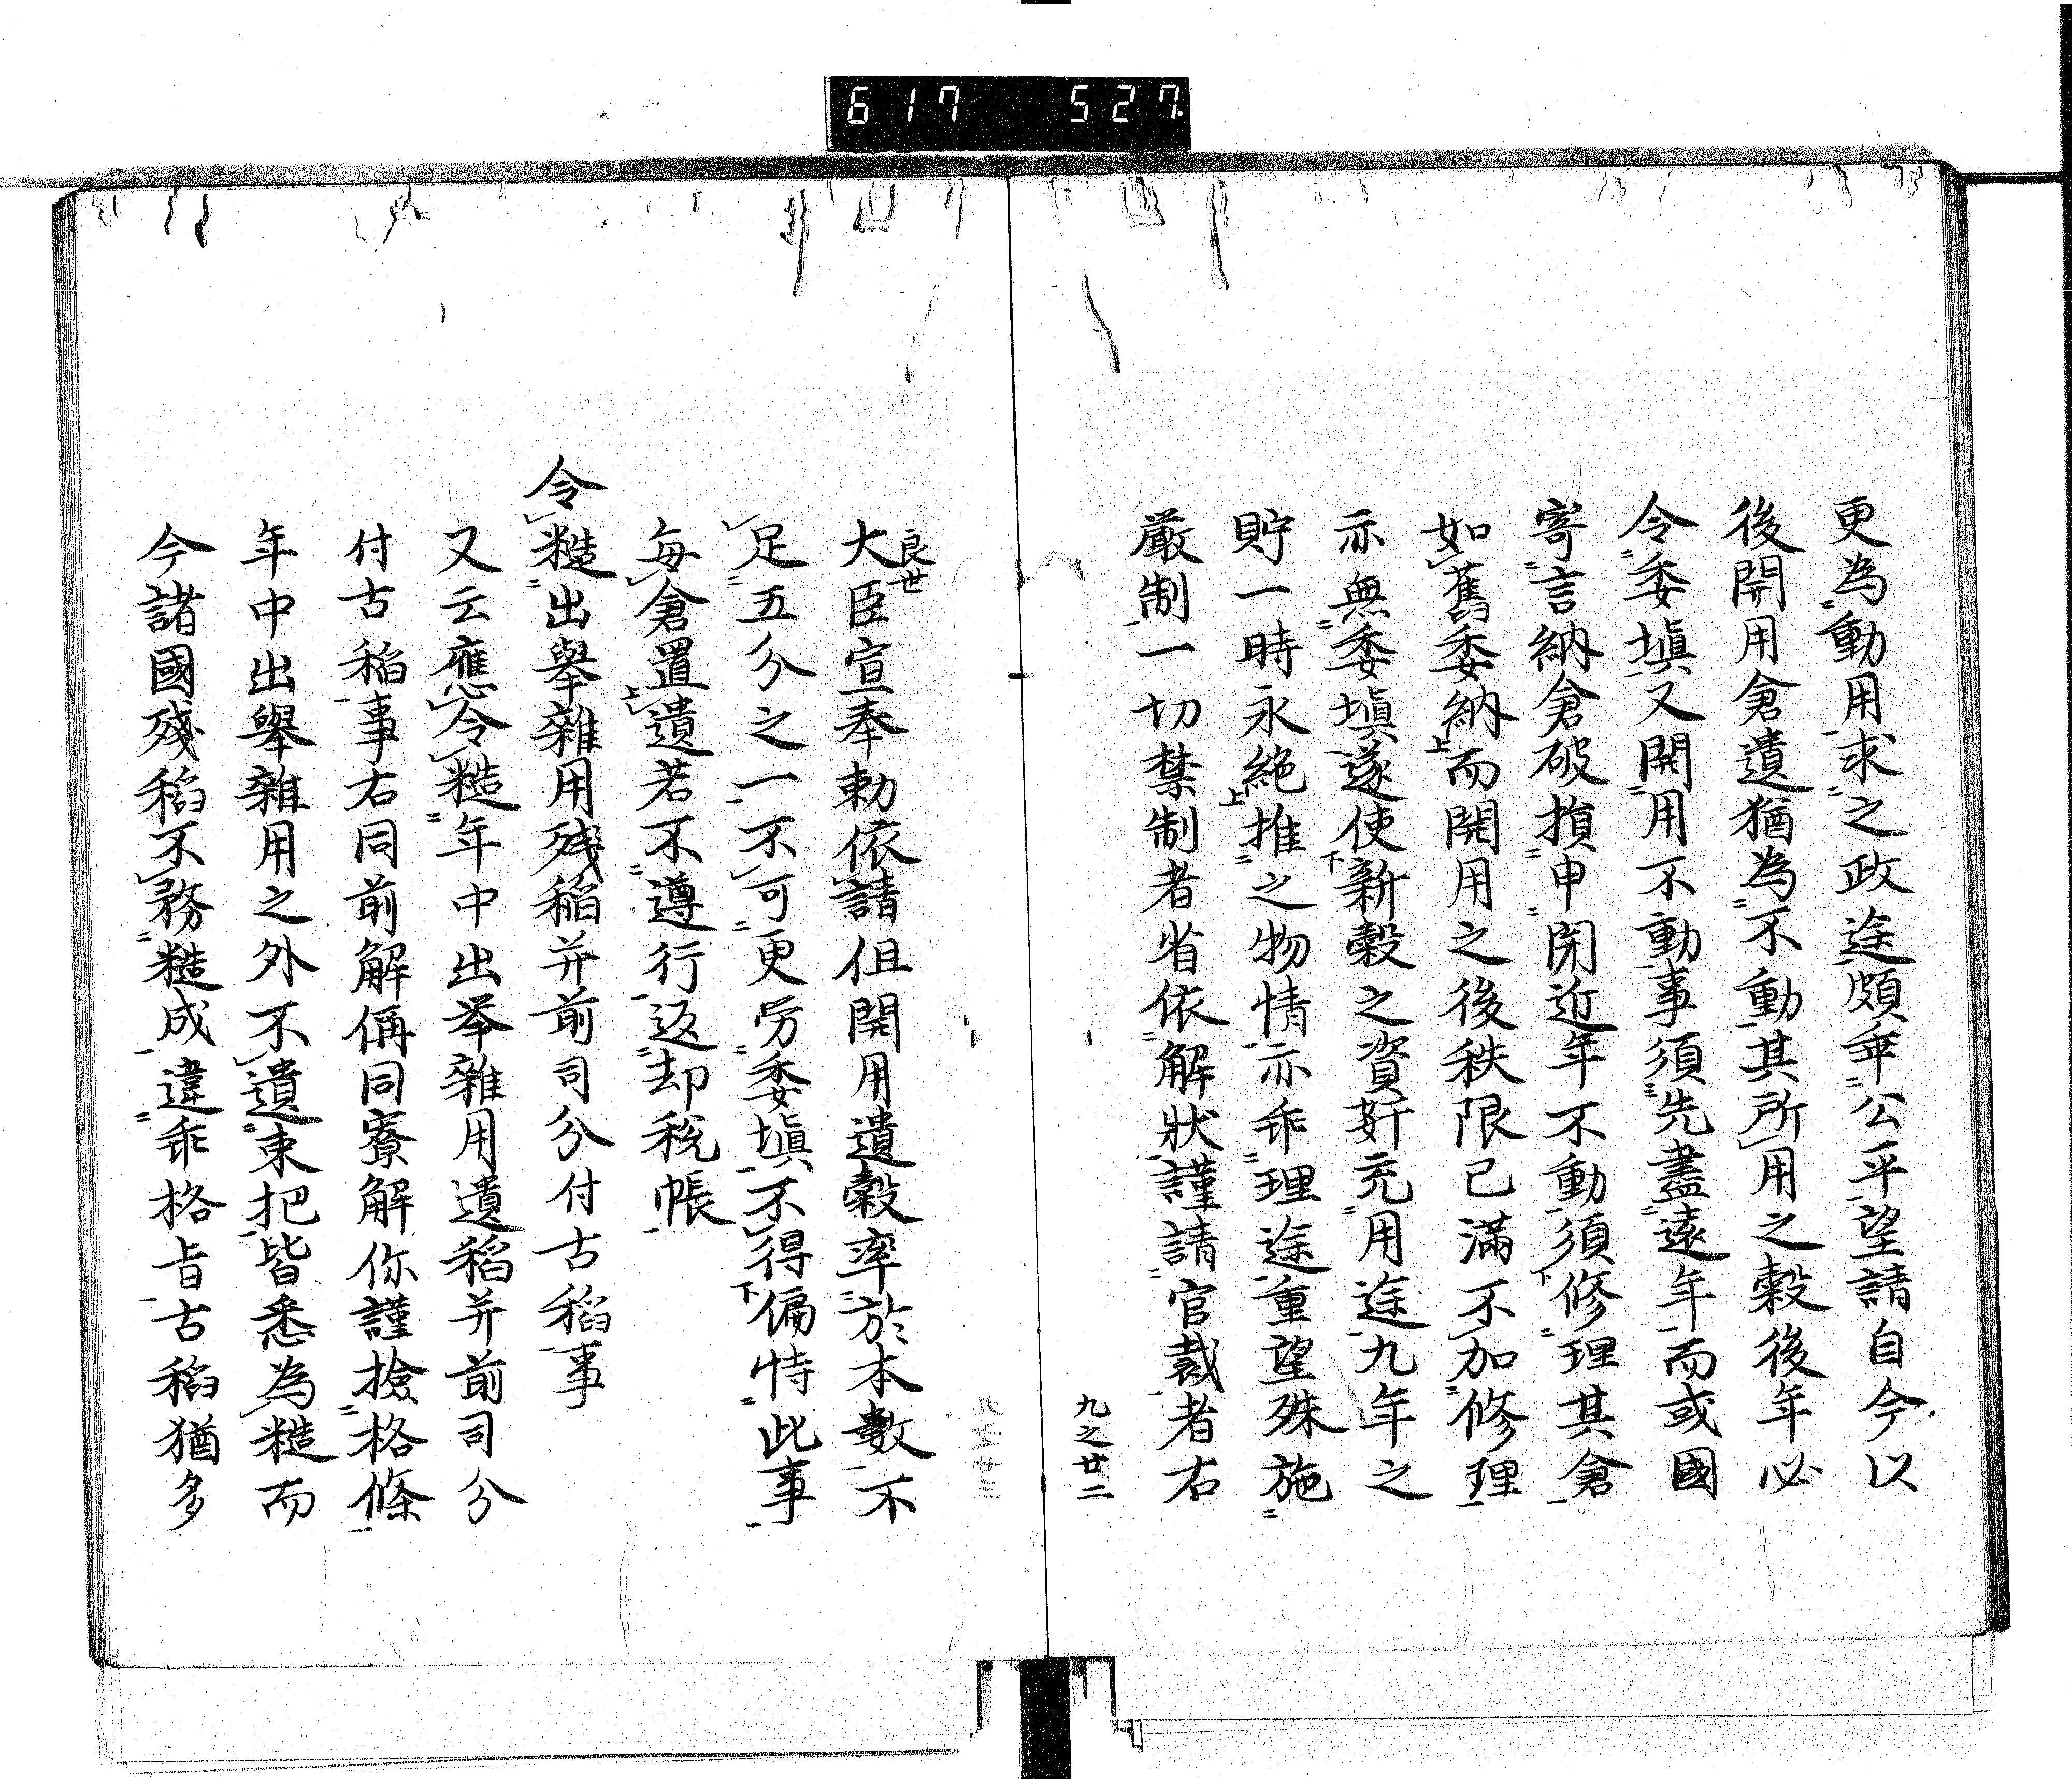 617 527
更為動用求之政途頗乖公平望請自今以
後開用倉遺猶為不動其所用之穀後年必
令委塡又開用不動事須先盡遠年而或國
寄言納倉破損申開近年不動須修理其倉
如舊委納而開用之後秩限已滿不加修理
亦無委塡遂使新穀之資奸充用途九年之
貯一時永絶推之物情亦乖理途重望殊施
厳制一切禁制者省依解狀謹請官裁者右
九之廿二
大臣良世宣奉勅依請但開用遺穀率於本數不
足五分之一不可更労委塡不得偏恃此事
毎倉置遺若不遵行返却税帳
令糙出擧雜用殘稲并前司分付古稲事
又云應令糙年中出挙雜用遺稲并前司分
付古稲事右同前解偁同寮解你謹撿格條
年中出擧雜用之外不遺束把皆悉為糙而
今諸國殘稲不務糙成違乖格旨古稲猶多